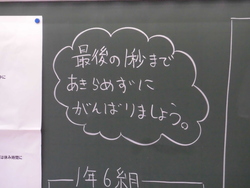 最後の1秒まで
あきらめずに
がんばりましょう。
1年6組